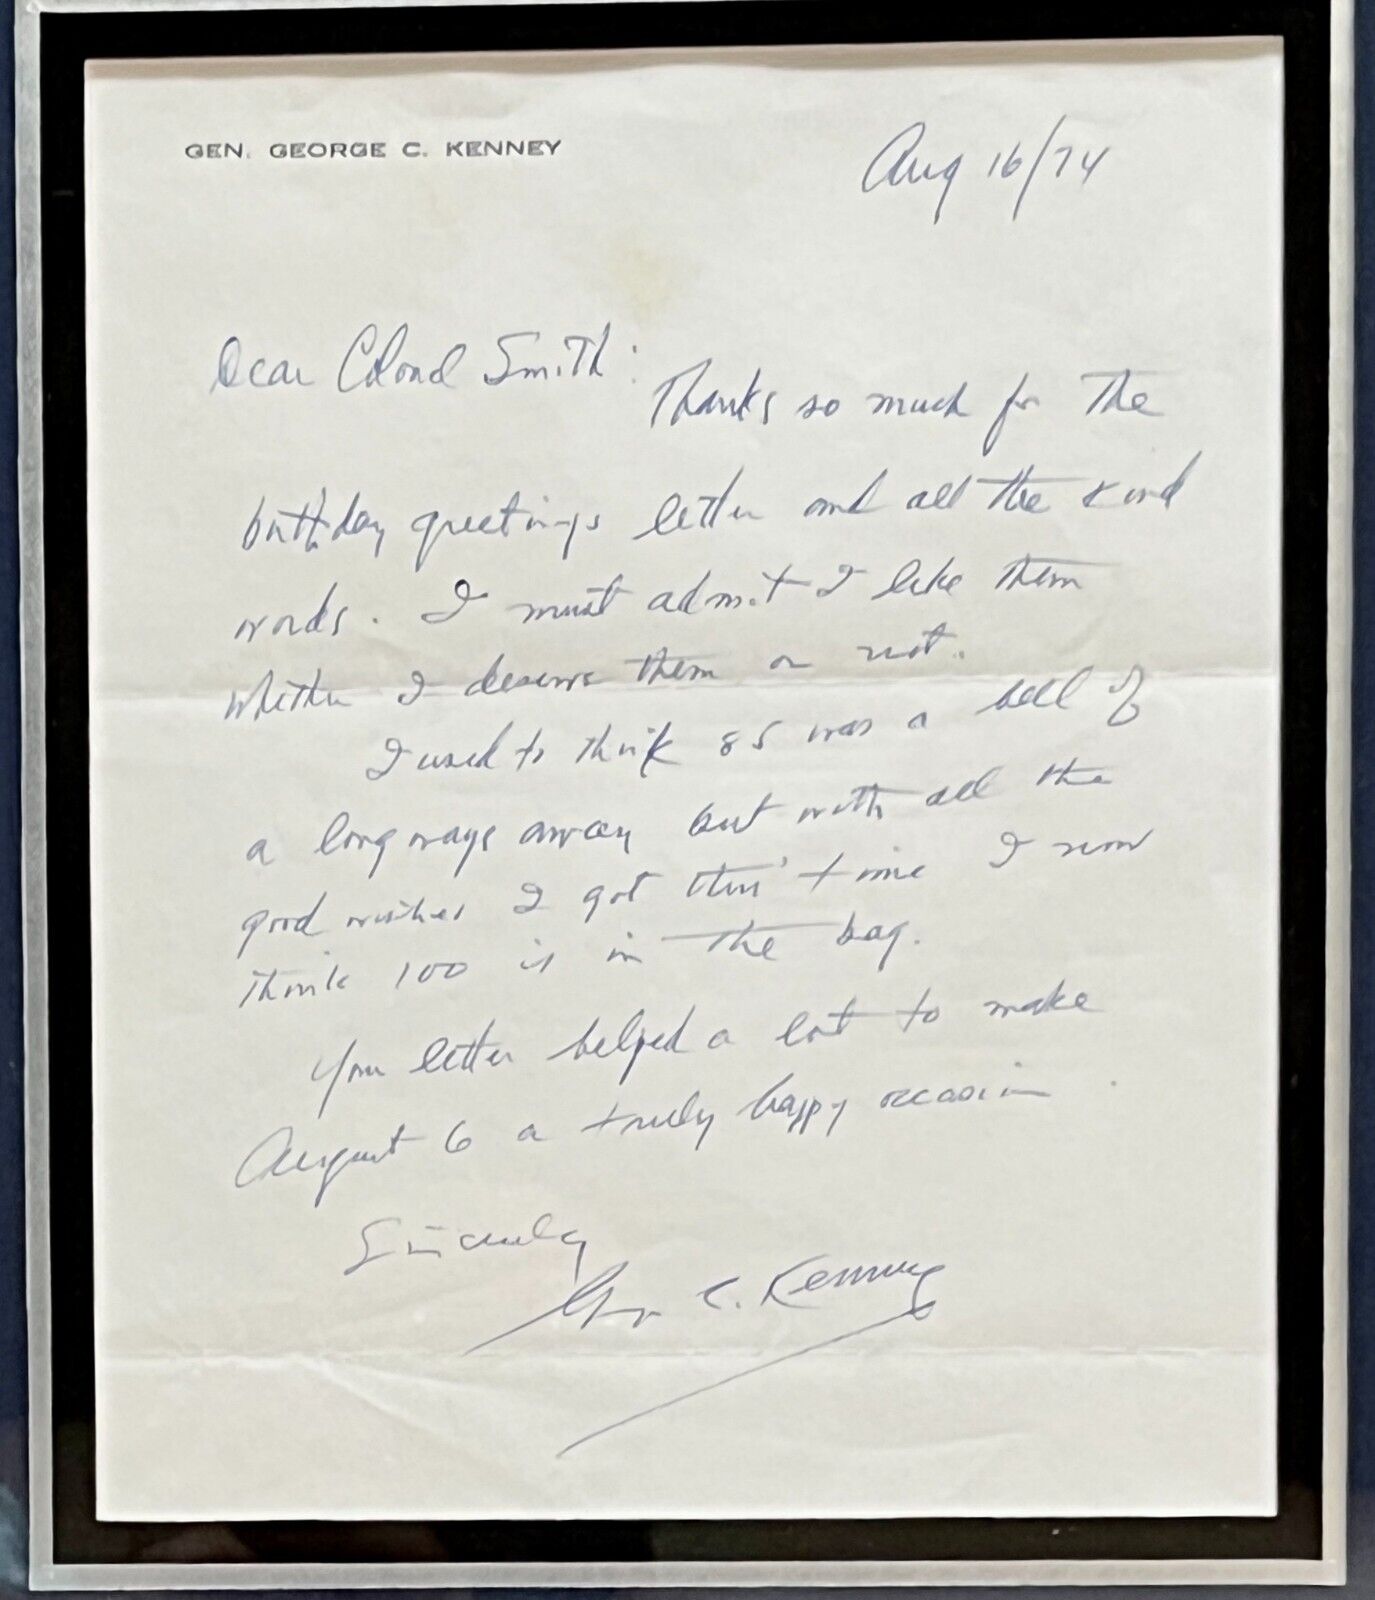 GEN. GEORGE C. KENNEY
Aug 16/74
Dear Colonel Smith:
Thanks so much for the
birthday greetings letter and all the kind
words. I must admit I like them
whether I deserve them or not.
I used to think 85 was a hell of
a long ways away but with all the
good wishes I got this time I now
think 100 is in the bag.
Your letter helped a lot to make
August 6 a truly happy occasion.
Sincerely
Geo. C. Kenney